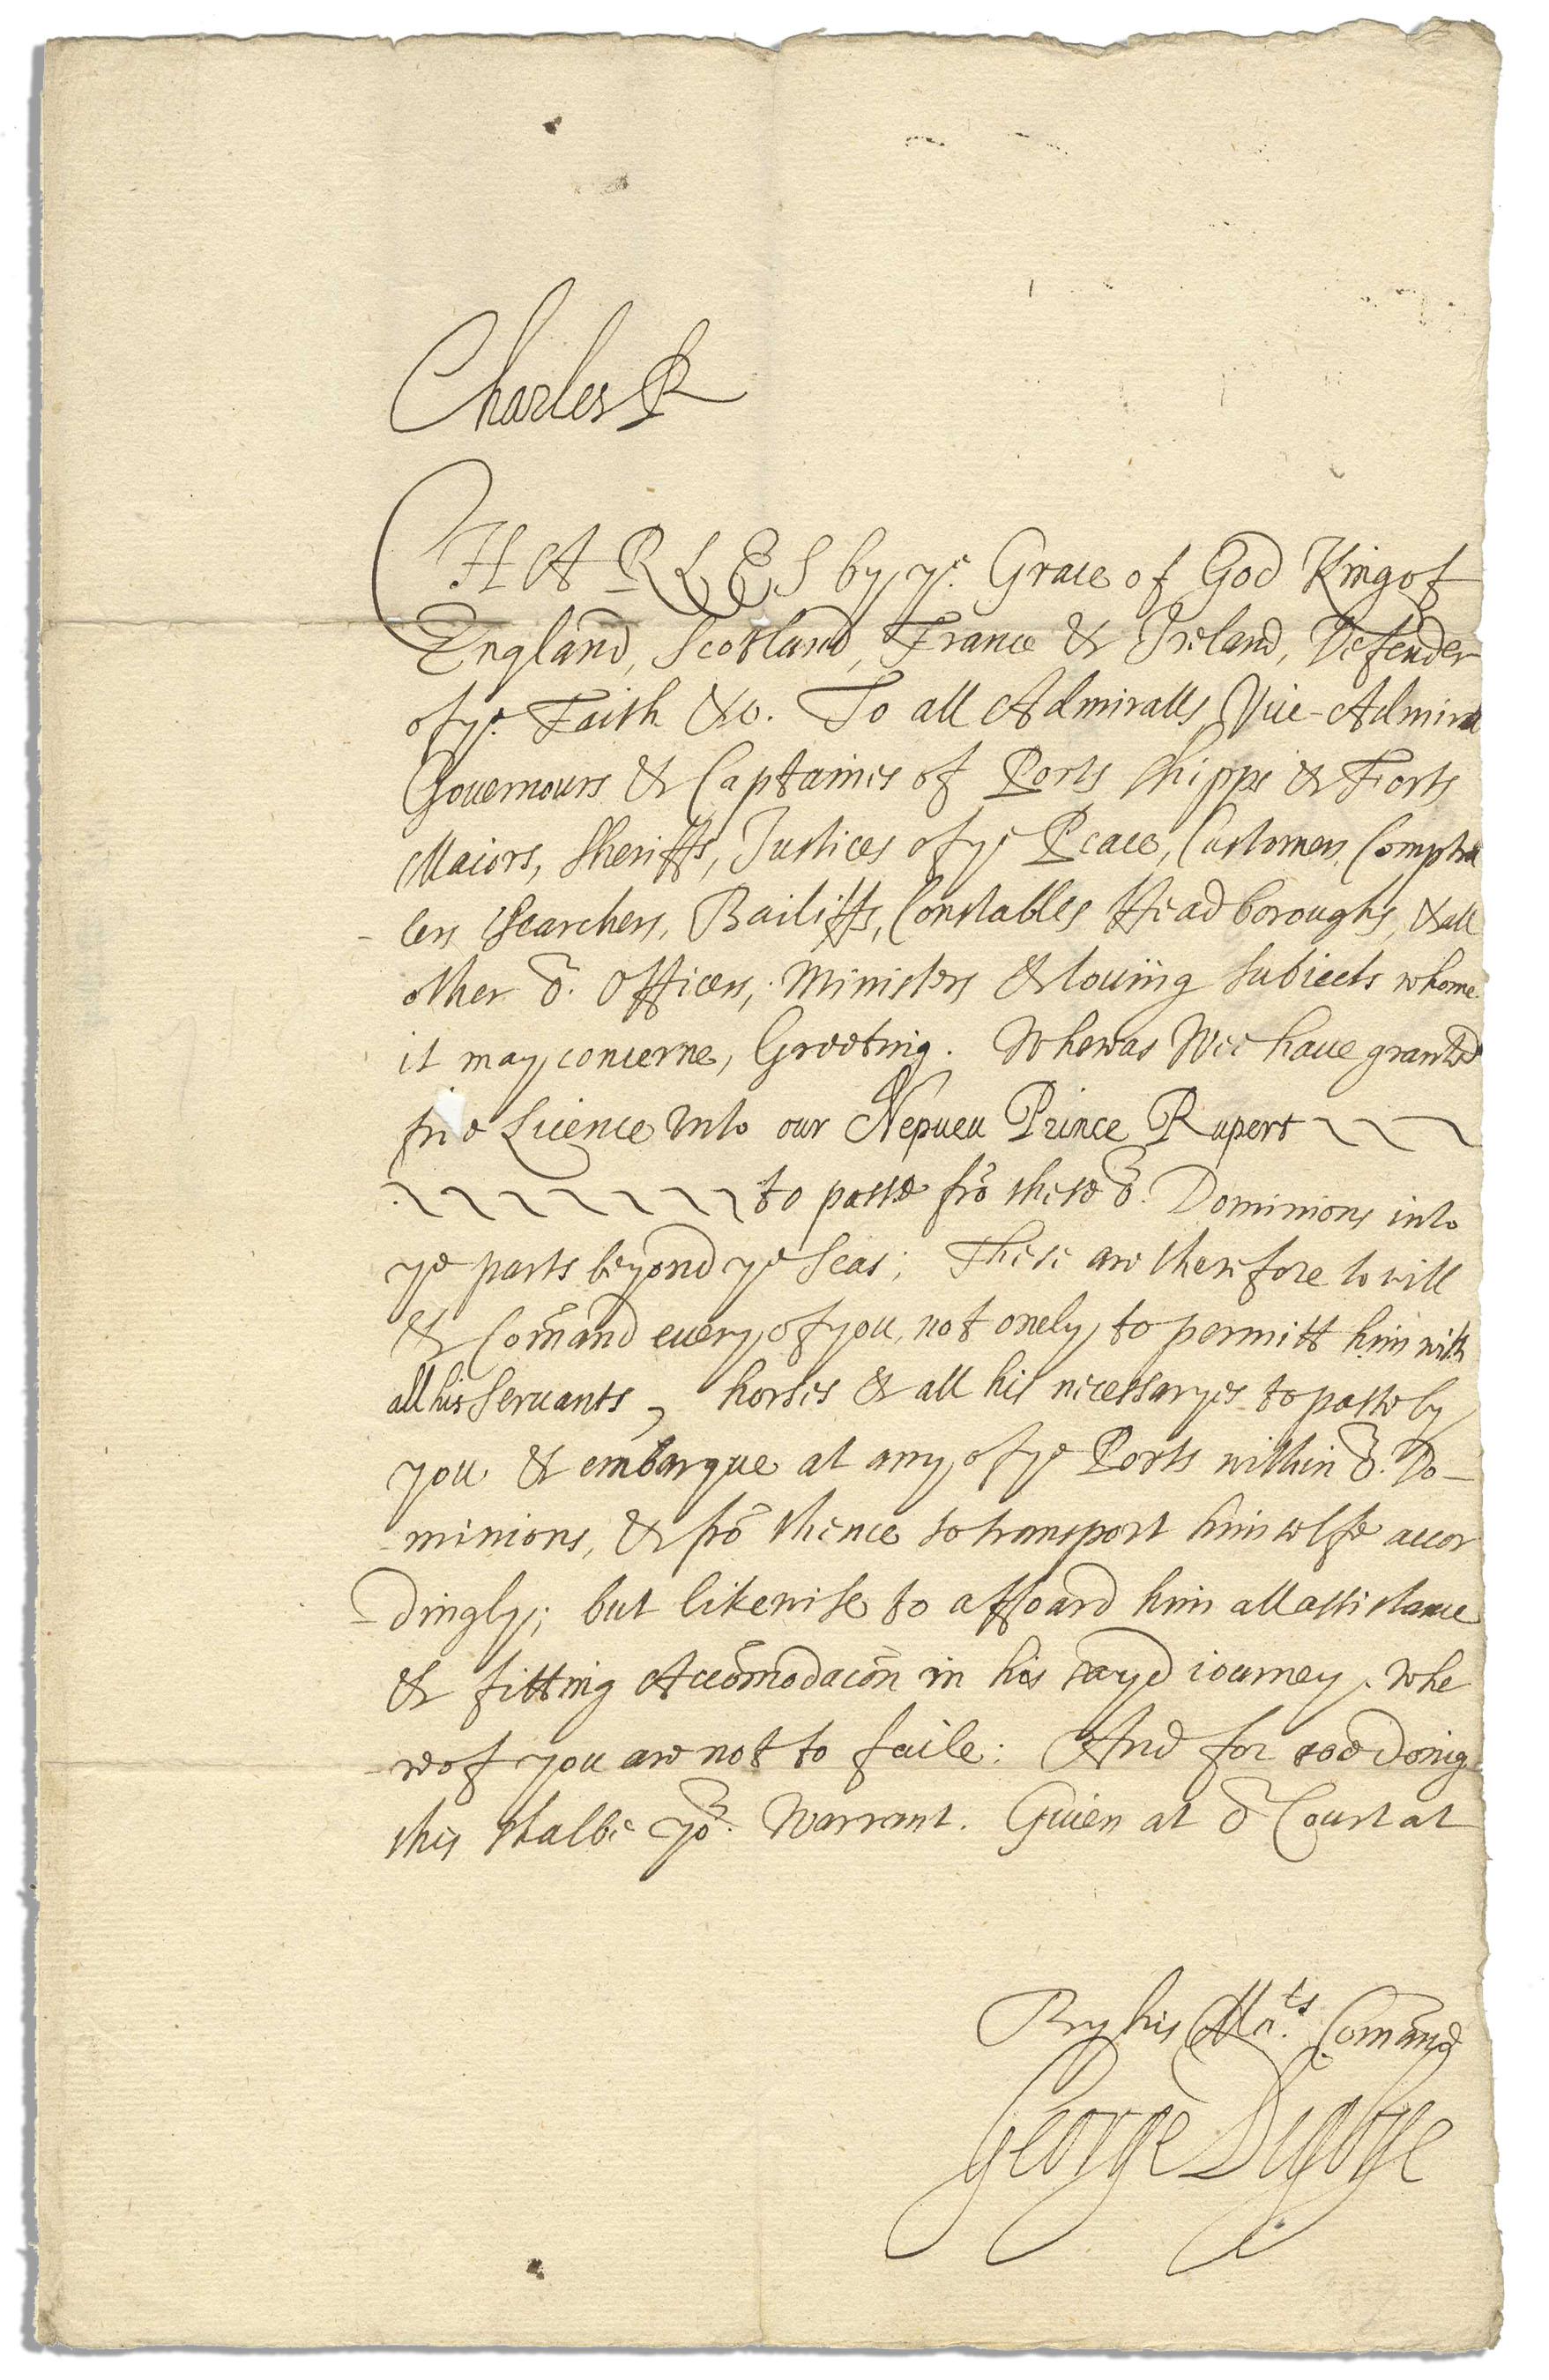 Charles R
CHARLES by ye. Grace of God King of
England, Scotland, France & Ireland, Defender
of ye. Faith &c. To all Admiralls Vice-Admira
Gouernours & Captaines of Ports Shipps & Forts
Maiors, Sheriffs, Justices of ye Peace, Customers, Comptro
lers Searchers, Bailiffs, Constables Headboroughs, & all
other or. Officers, Ministers & louiing subiects whome
it may concerne, Greeting. Whereas Wee haue granted
free Licence vnto our Nepueu Prince Rupert
to passe frō these or. Dominions into
ye parts beyond ye Seas; These are therefore to will
& Com̄and euery of you, not onely to permitt him with
all his Seruants, horses & all his necessaryes to passe by
you & embarque at any of ye Ports within or. Do-
minions, & frō thence to transport himselfe accor
-dingly; but likewise to affoard him all assistance
& fitting Accōmodacōn in his sayd iourney. Whe
-reof you are not to faile: And for soe doing
this shalbe yor. Warrant. Giuen at or Court at
By his Mats. Com̄and
George Digbye